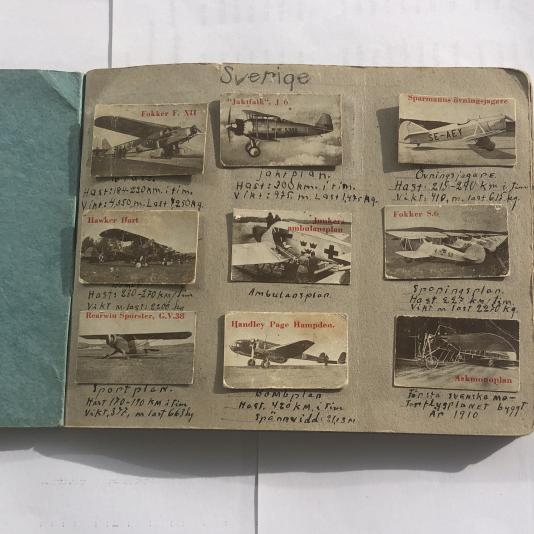 Sverige
Fokker F. XII
Hast: 184-230 km. i tim.
Vikt: 4350, m. Last 7250 kg.
"Jaktfalk", J 6
Jaktplan.
Hast: 300 km. i tim.
Vikt: 975, m. Last 1,475 kg.
Sparmanns övningsjagare
SE-AEY
Övningsjagare.
Hast: 215-290 km i tim
Vikt: 410, m. last 615 kg.
Hawker Hart
Hast: 250-270 km/tim
Vikt m last: 2204 kg
Junkers
ambulansplan
Ambulansplan.
Fokker S.6
Spaningsplan.
Hast. 227 km/tim.
Vikt m last 2250 kg.
Rearwin Sporster, G.V.38
Sportplan.
Hast 170-190 km i tim
Vikt, 377, m last 663 kg
Handley Page Hampden.
Bombplan
Hast. 420 km. i tim
Spännvidd
Askmonoplan
Första svenska mo-
torflygplanet byggt
År 1910